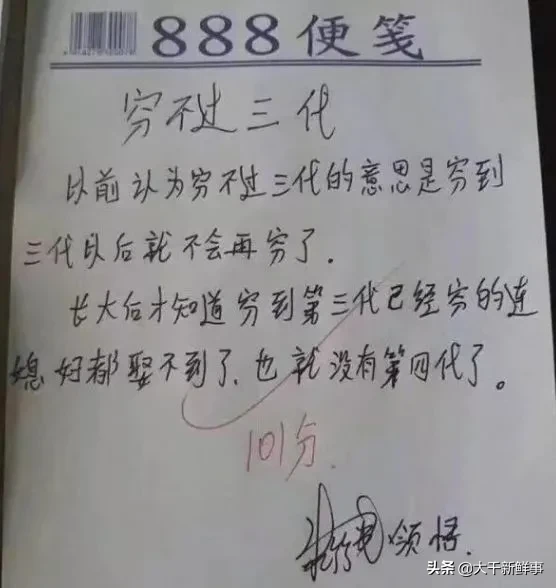 888便笺
穷不过三代
以前认为穷不过三代的意思是穷到
三代以后就不会再穷了.
长大后才知道穷到第三代已经穷的连
媳妇都娶不到了.也就没有第四代了。
101分.
领悟.
头条 @大千新鲜事